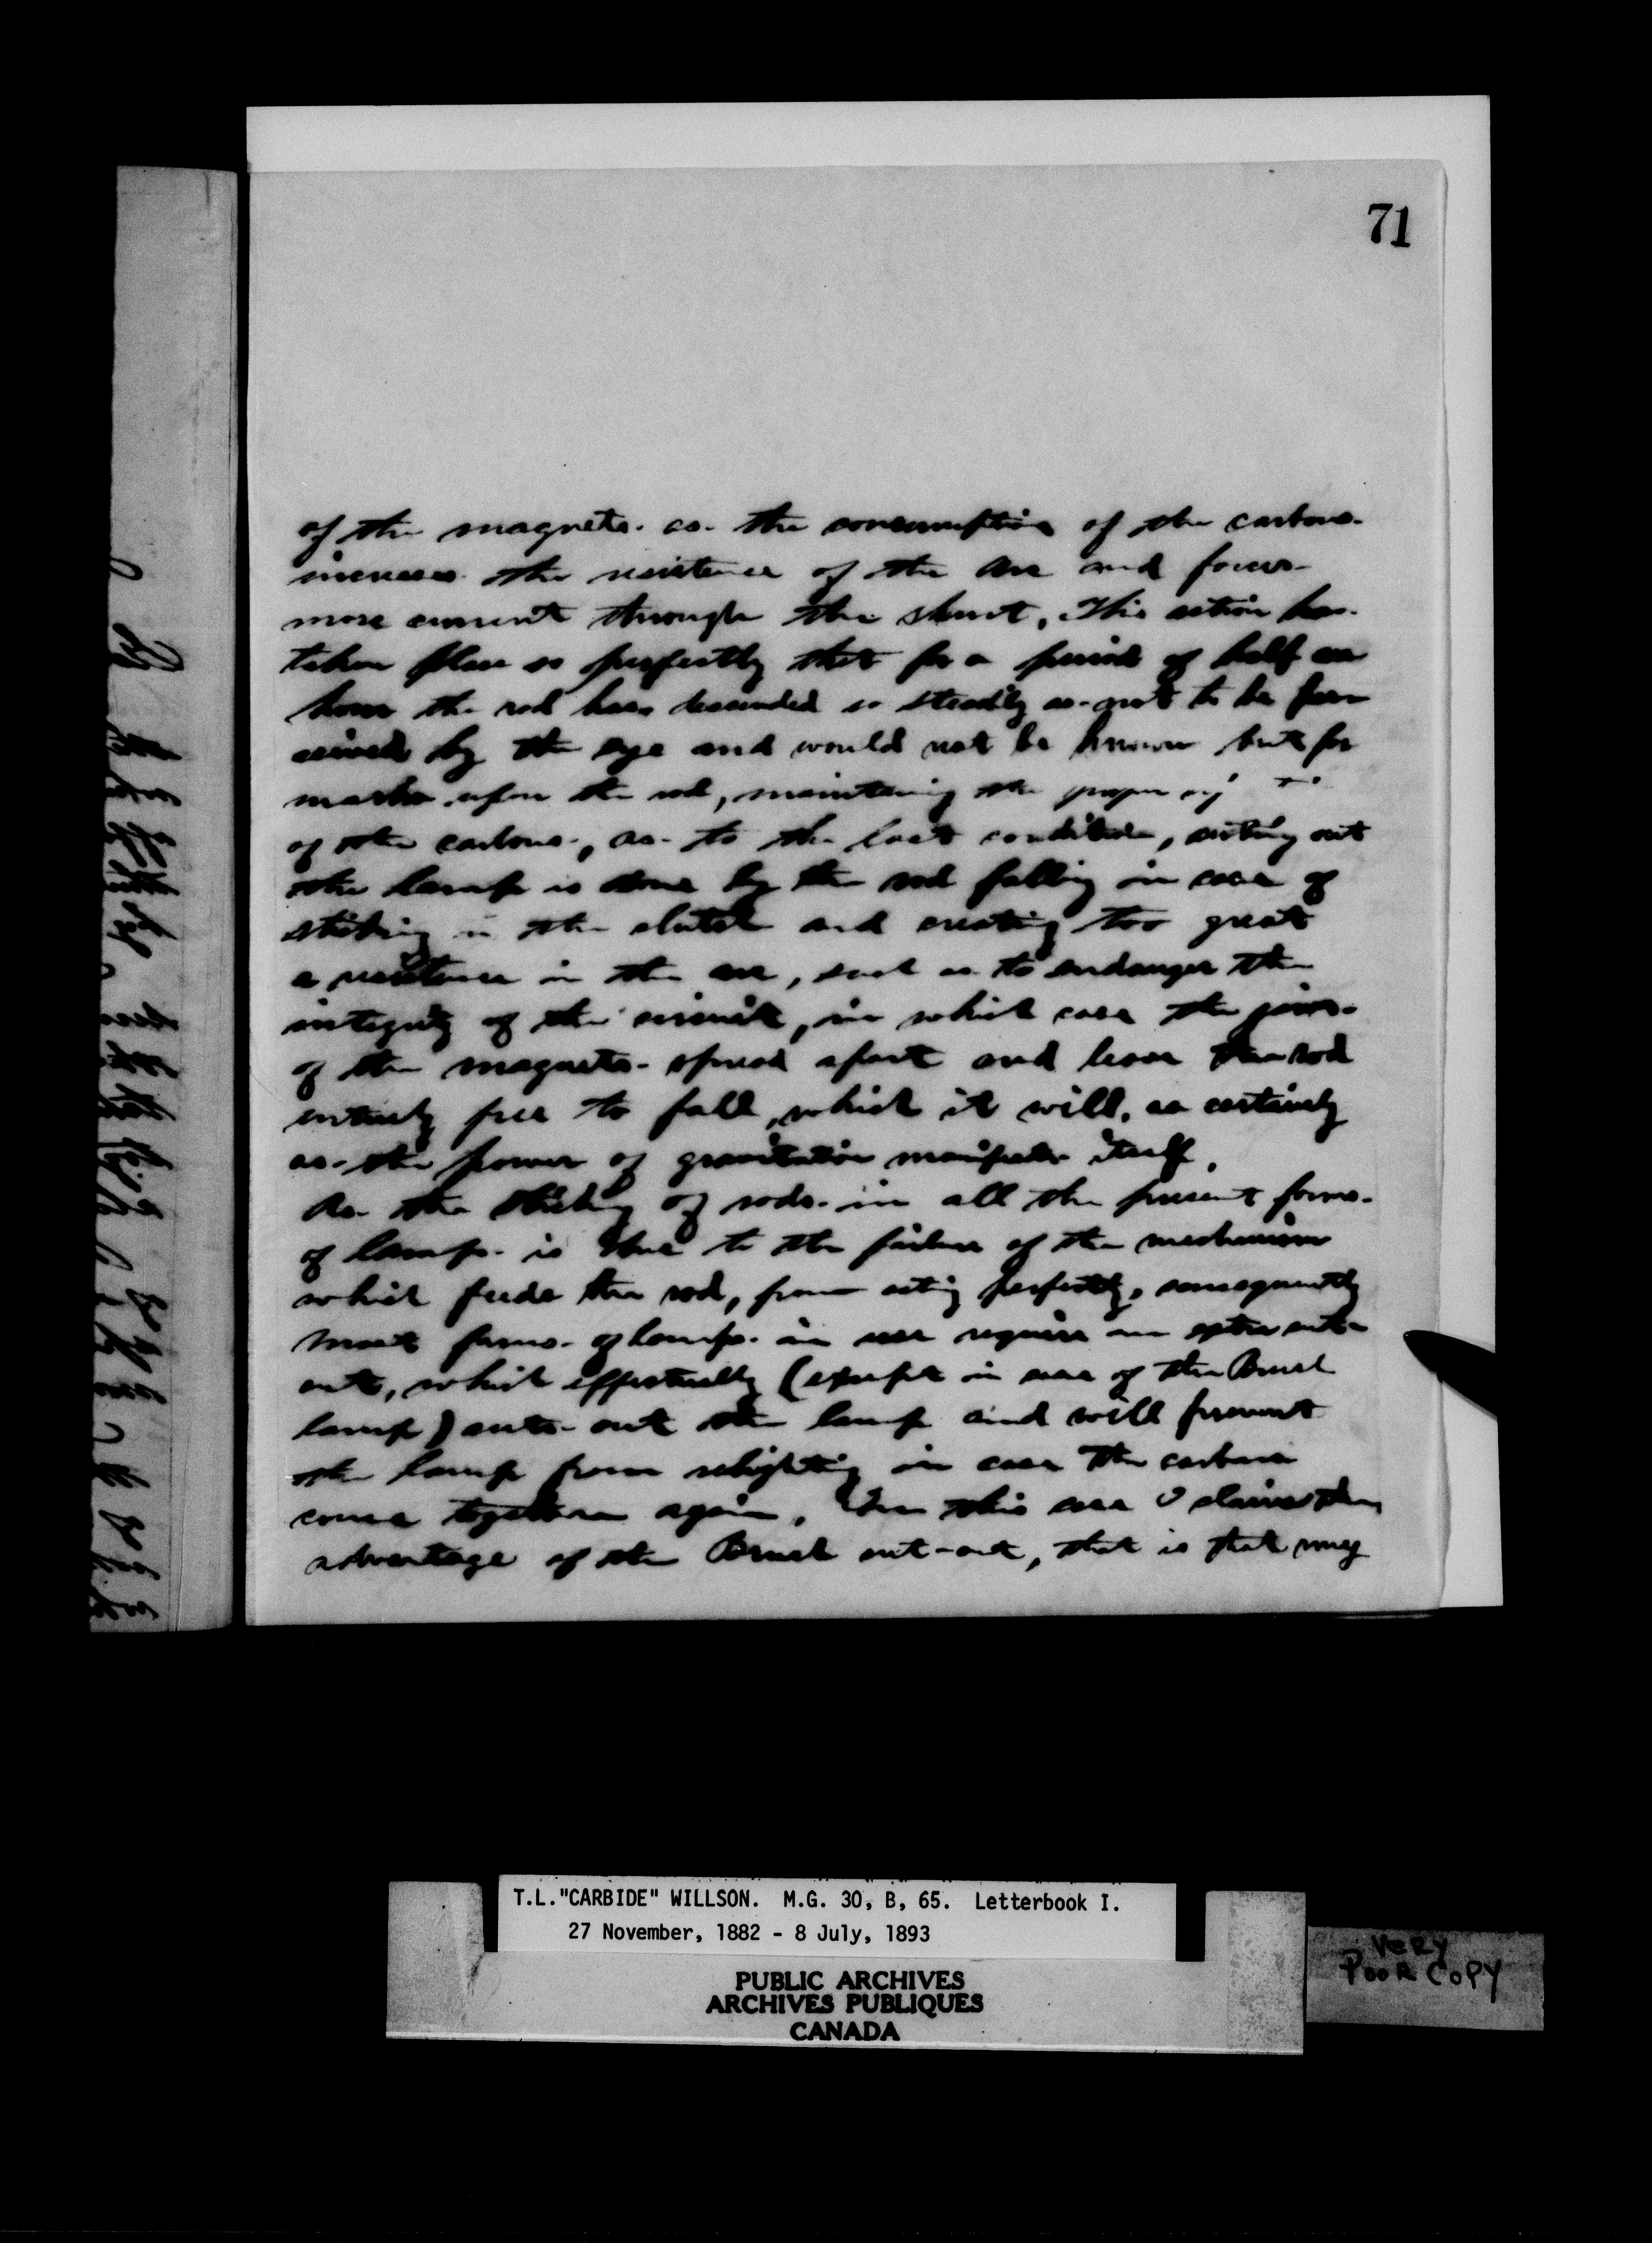 71
of the magnets as the consumption of the carbons
increases the resistance of the arc and forces
more current through the shunt. This action has
taken place so perfectly that for a period of half an
hour the rod has descended so steadily as not to be per
ceived by the eye and would not be known but for
marks upon the rod, maintaining the proper
of the carbons, as to the last condition, cutting out
the lamp is done by the rod falling in case of
sticking in the clutch and creating too great
a resistance in the arc, such as to endanger the
integrity of the circuit, in which case the jaws
of the magnets spread apart and leave the rod
entirely free to fall, which it will, as certainly
as the power of gravitation manifests itself.
As the sticking of rods in all the present forms
of lamps is due to the failure of the mechanism
which feeds the rod, from acting perfectly, consequently
most forms of lamps in use require an extra cut-
out, which effectually (except in case of the Brush
lamp) cuts-out the lamp and will prevent
the lamp from relighting in case the carbons
come together again. In this case I claim the
advantage of the Brush cut-out, that is that my
T.L."CARBIDE" WILLSON. M.G. 30, B, 65. Letterbook I.
27 November, 1882 - 8 July, 1893
PUBLIC ARCHIVES
ARCHIVES PUBLIQUES
CANADA
VERY
POOR COPY